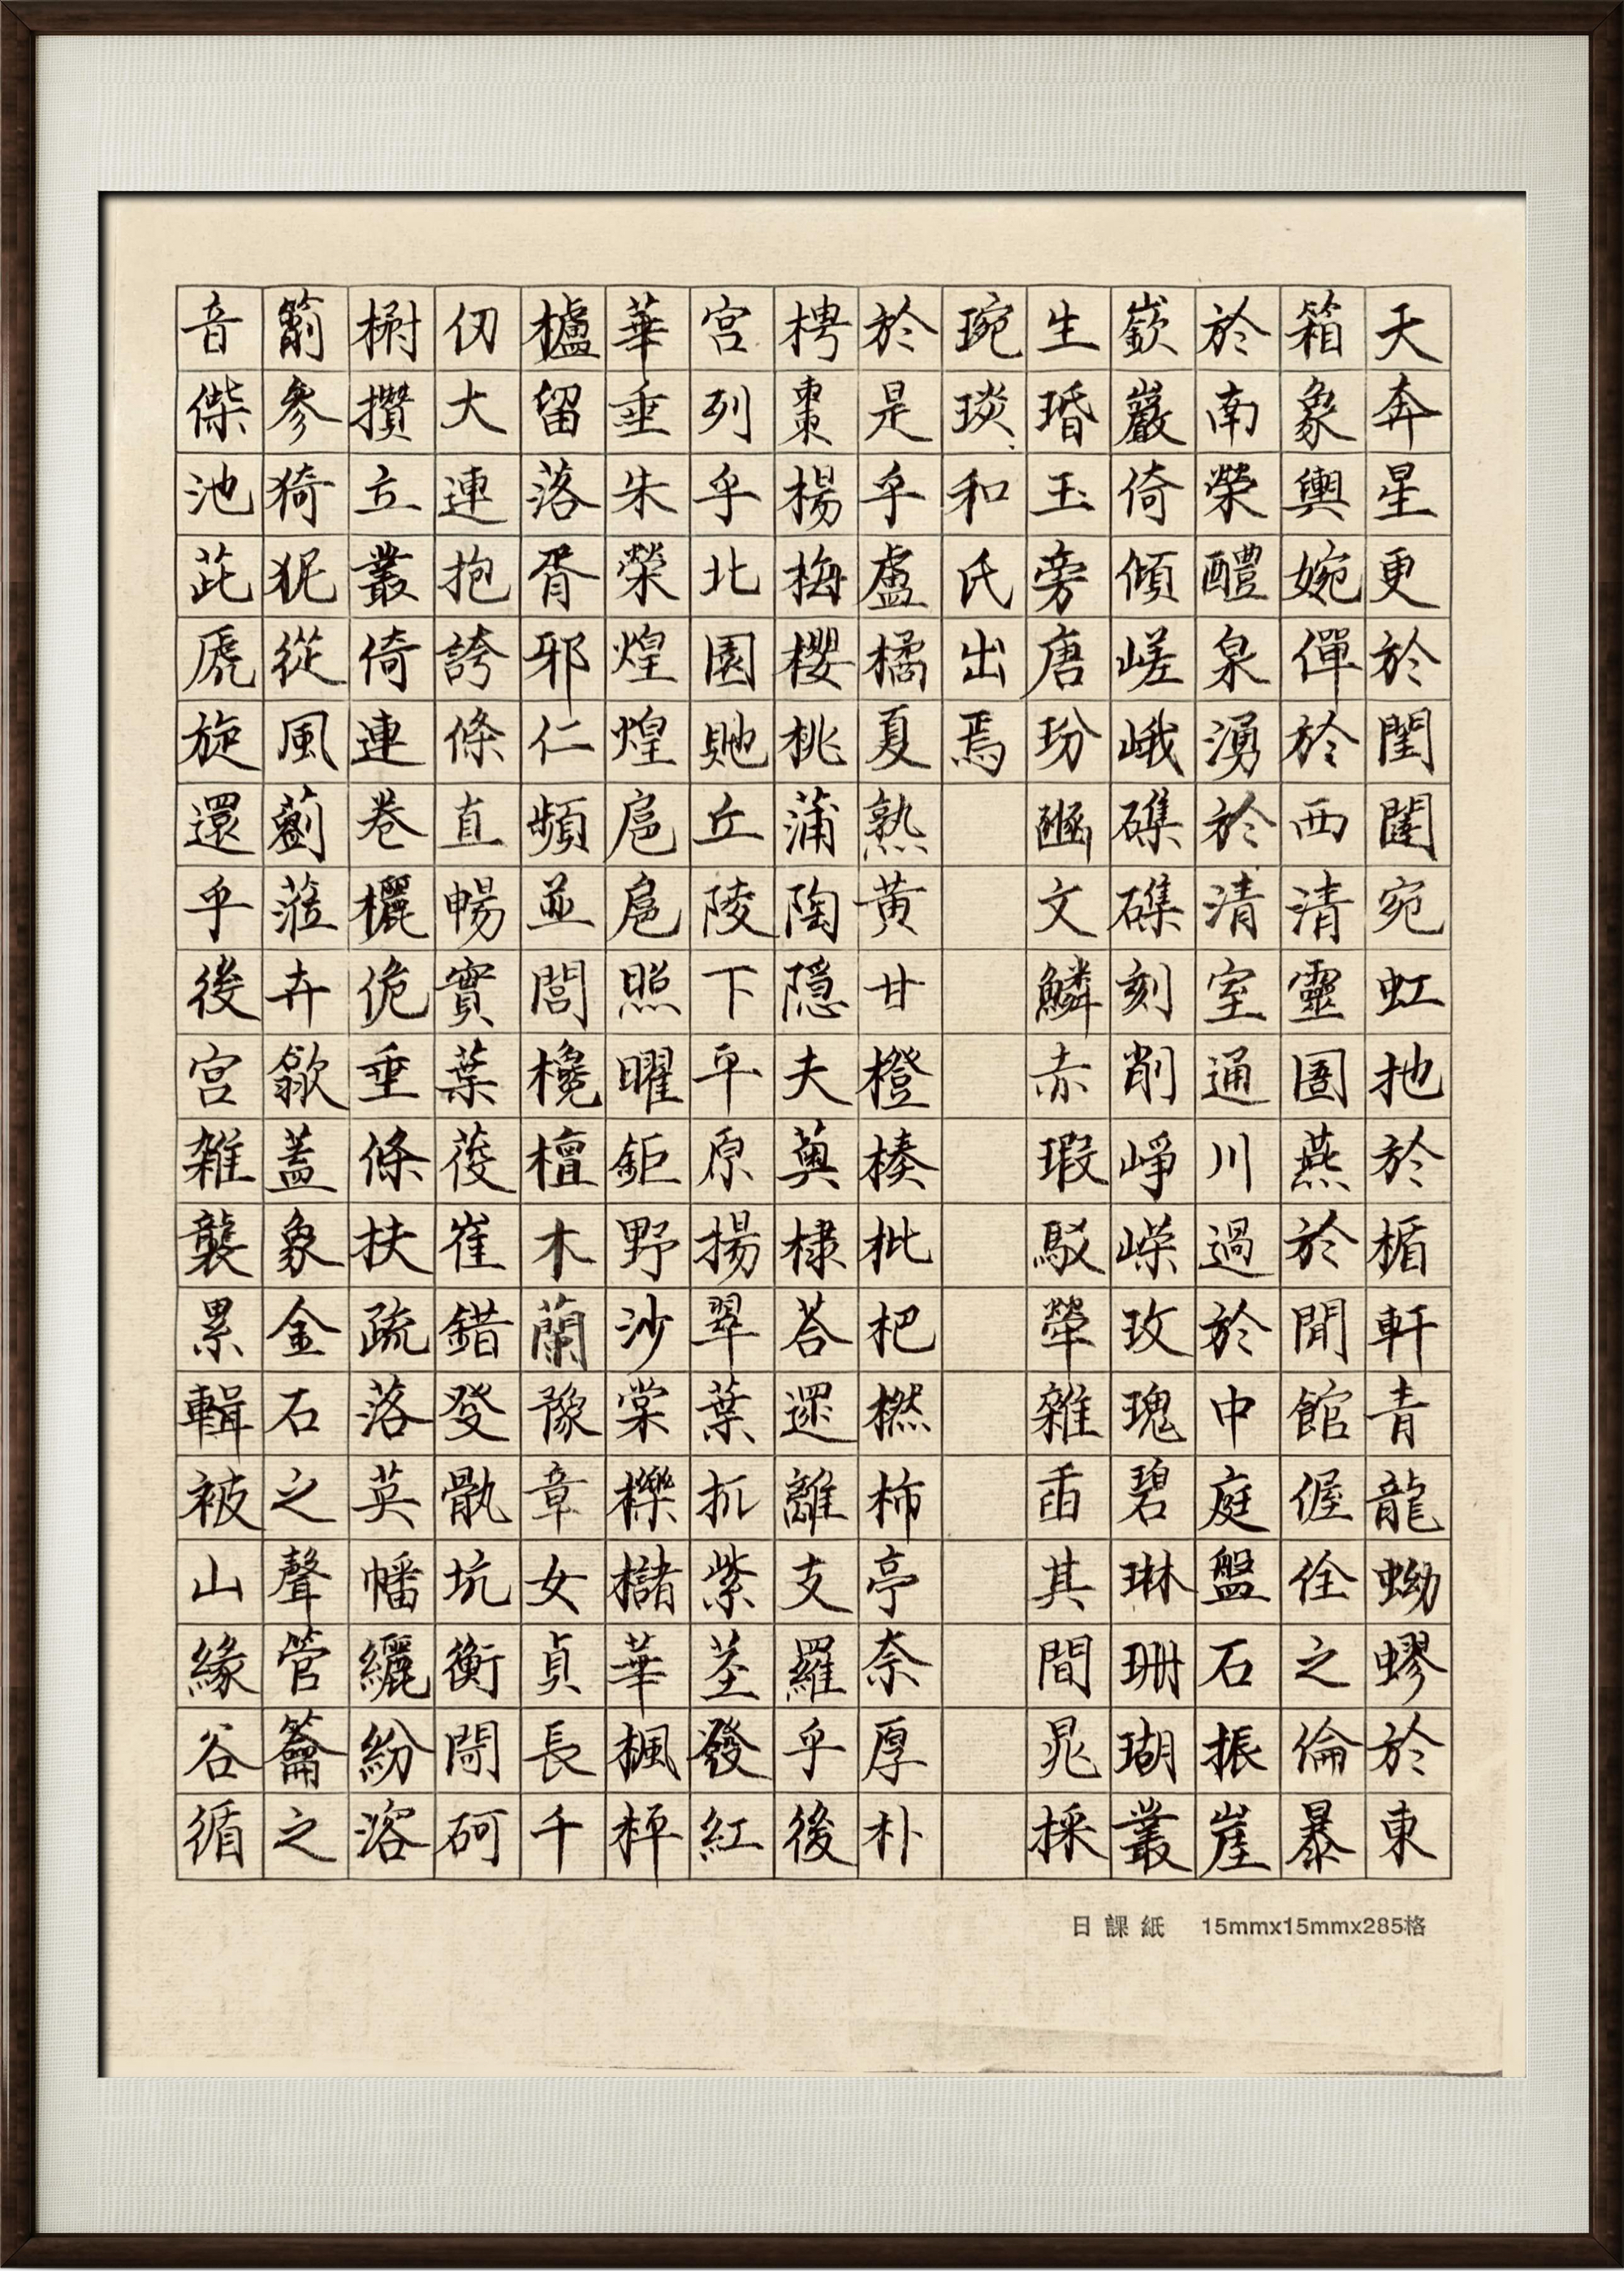 天奔星更於閨闥宛虹扡於楯軒青龍蚴蟉於東
箱象輿婉僤於西清靈圄燕於閒館偓佺之倫暴
於南榮醴泉湧於清室通川過於中庭盤石振崖
嶔巖倚傾嵯峨磼礏刻削崢嶸玫瑰碧琳珊瑚叢
生瑉玉旁唐玢豳文鱗赤瑕駁犖雜臿其間晁採
琬琰和氏出焉
於是乎盧橘夏熟黃甘橙楱枇杷橪柿亭奈厚朴
梬棗楊梅櫻桃蒲陶隱夫薁棣荅遝離支羅乎後
宮列乎北園貤丘陵下平原揚翠葉扤紫莖發紅
華垂朱榮煌煌扈扈照曜鉅野沙棠櫟櫧華楓枰
櫨留落胥邪仁頻並閭欃檀木蘭豫章女貞長千
仞大連抱夸條直暢實葉葰崔錯癹骫坑衡閜砢
樹攢立叢倚連卷欐佹垂條扶疏落英幡纚紛溶
箾參猗狔從風藰蒞卉歙蓋象金石之聲管籥之
音傑池茈虒旋還乎後宮雜襲累輯被山緣谷循
日課紙 15mmx15mmx285格